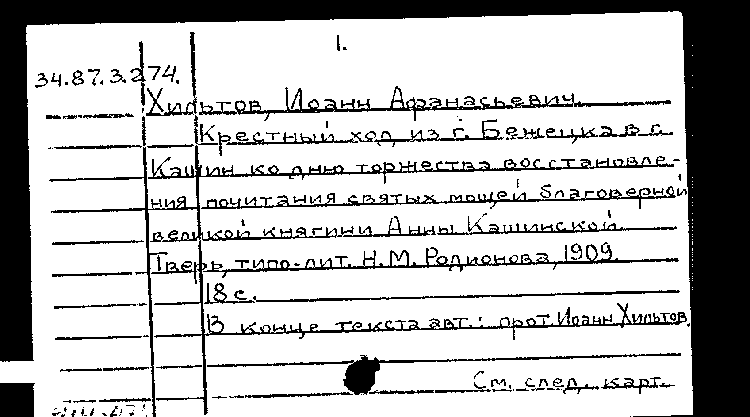 1.
34.87.3.274.
Хильтов, Иоанн Афанасьевич.
Крестный ход из г. Бежецка в г.
Кашин ко дню торжества восстановле-
ния почитания святых мощей благоверной
великой княгини Анны Кашинской.
Тверь, типо-лит. Н.М. Родионова, 1909.
18 с.
В конце текста авт.: прот. Иоанн Хильтов.
См. след. карт.